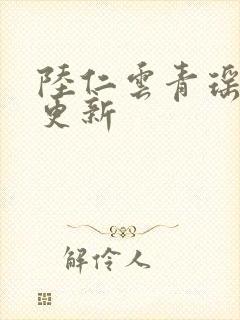 陸仁雲青瑶
更新
解伶人